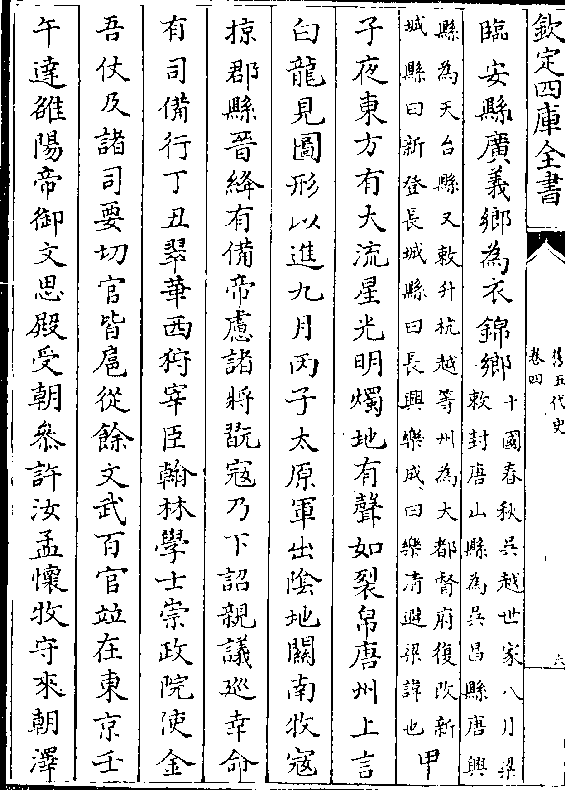 欽定四庫全書
舊五代史
卷四
六
臨安縣廣義鄉為衣錦鄉
十國春秋吳越世家八月梁
敕封唐山縣為吳昌縣唐興
縣為天台縣又敕升杭越等州為大都督府復改新
城縣曰新登長城縣曰長興樂成曰樂清避梁諱也
甲
子夜東方有大流星光明燭地有聲如裂帛唐州上言
白龍見圖形以進九月丙子太原軍出陰地關南牧寇
掠郡縣晉絳有備帝慮諸將翫寇乃下詔親議巡幸命
有司備行丁丑翠華西狩宰臣翰林學士崇政院使金
吾仗及諸司要切官皆扈從餘文武百官竝在東京壬
午達雒陽帝御文思殿受朝叅許汝孟懷牧守來朝澤